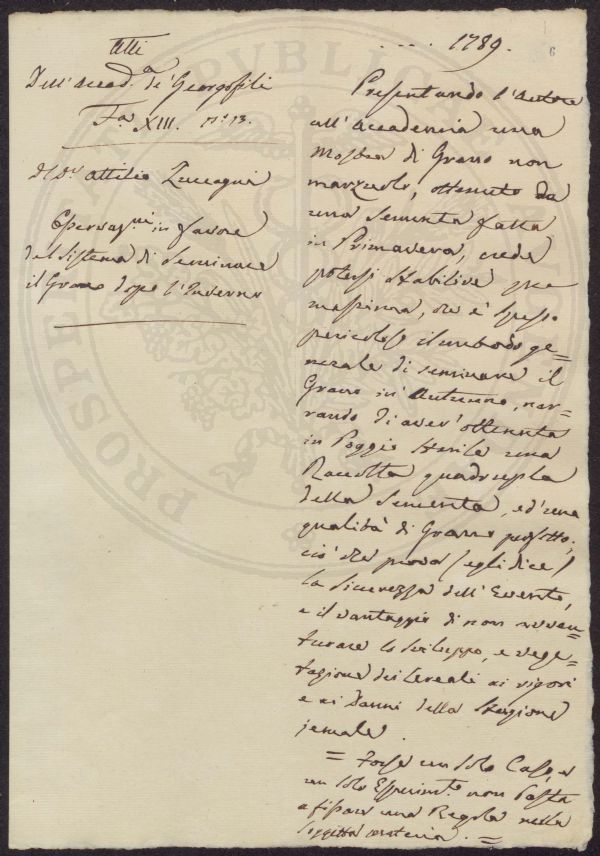 Atti
Dell'Accad.a de' Georgofili
XIII. n.° 13.
del D.r Attilio Zuccagni
Osservaz.ni in favore
del Sistema di Seminare
il Grano dopo l'Inverno
.... 1789.
6
Presentando l'Autore
all'Accademia una
Mostra di Grano non
marzuolo, ottenuto da
una Sementa fatta
in Primavera, crede
potersi stabilire per
massima, che è spesso
pericoloso il metodo ge=
nerale di seminare il
Grano in Autunno, nar=
rando di aver ottenuta
in Poggio sterile una
Raccolta quadrupla
della Sementa, ed'una
qualità di Grano perfetto;
ciò che prova (egli dice)
la sicurezza dell'Evento,
e il vantaggio di non avven=
turare lo sviluppo, e vege=
tazione dei Cereali ai rigori
e ai Danni della Stagione
jemale.
= Forse un solo Caso, e
un solo Esperim.to non basta
a fissare una Regola nella
soggetta materia. =
PVBLICAE
PROSPE